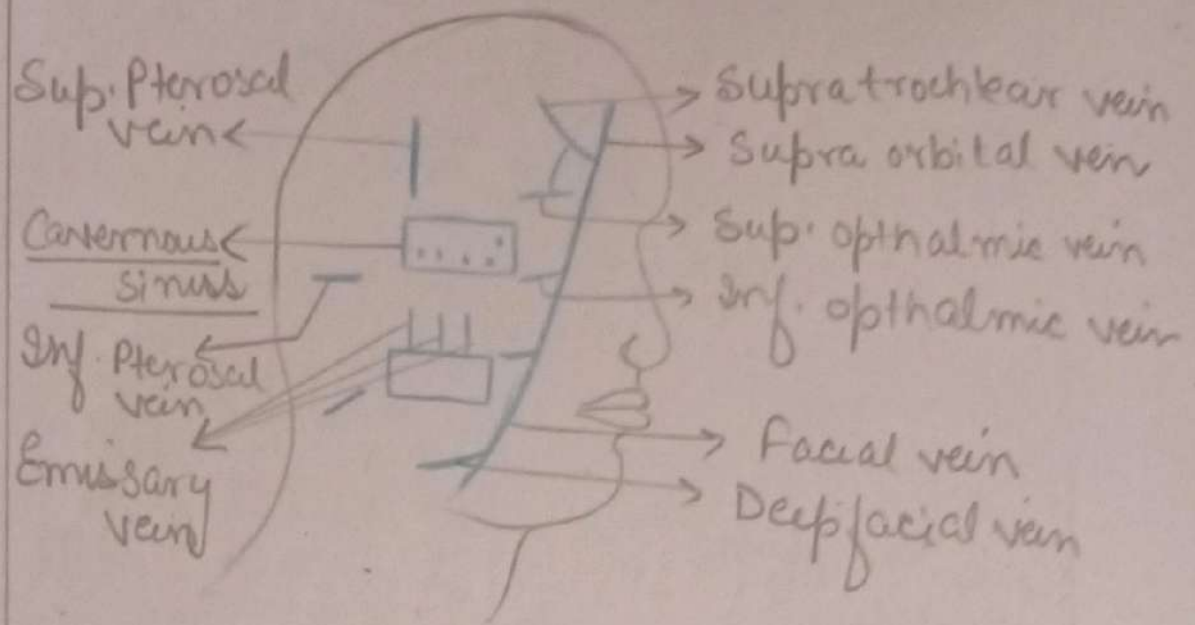 Sup. Pterosal
vein
Cavernous
sinus
Inf. Pterosal
vein
Emissary
vein
Supratrochlear vein
Supra orbital vein
Sup. opthalmic vein
Inf. opthalmic vein
Facial vein
Deep facial vein